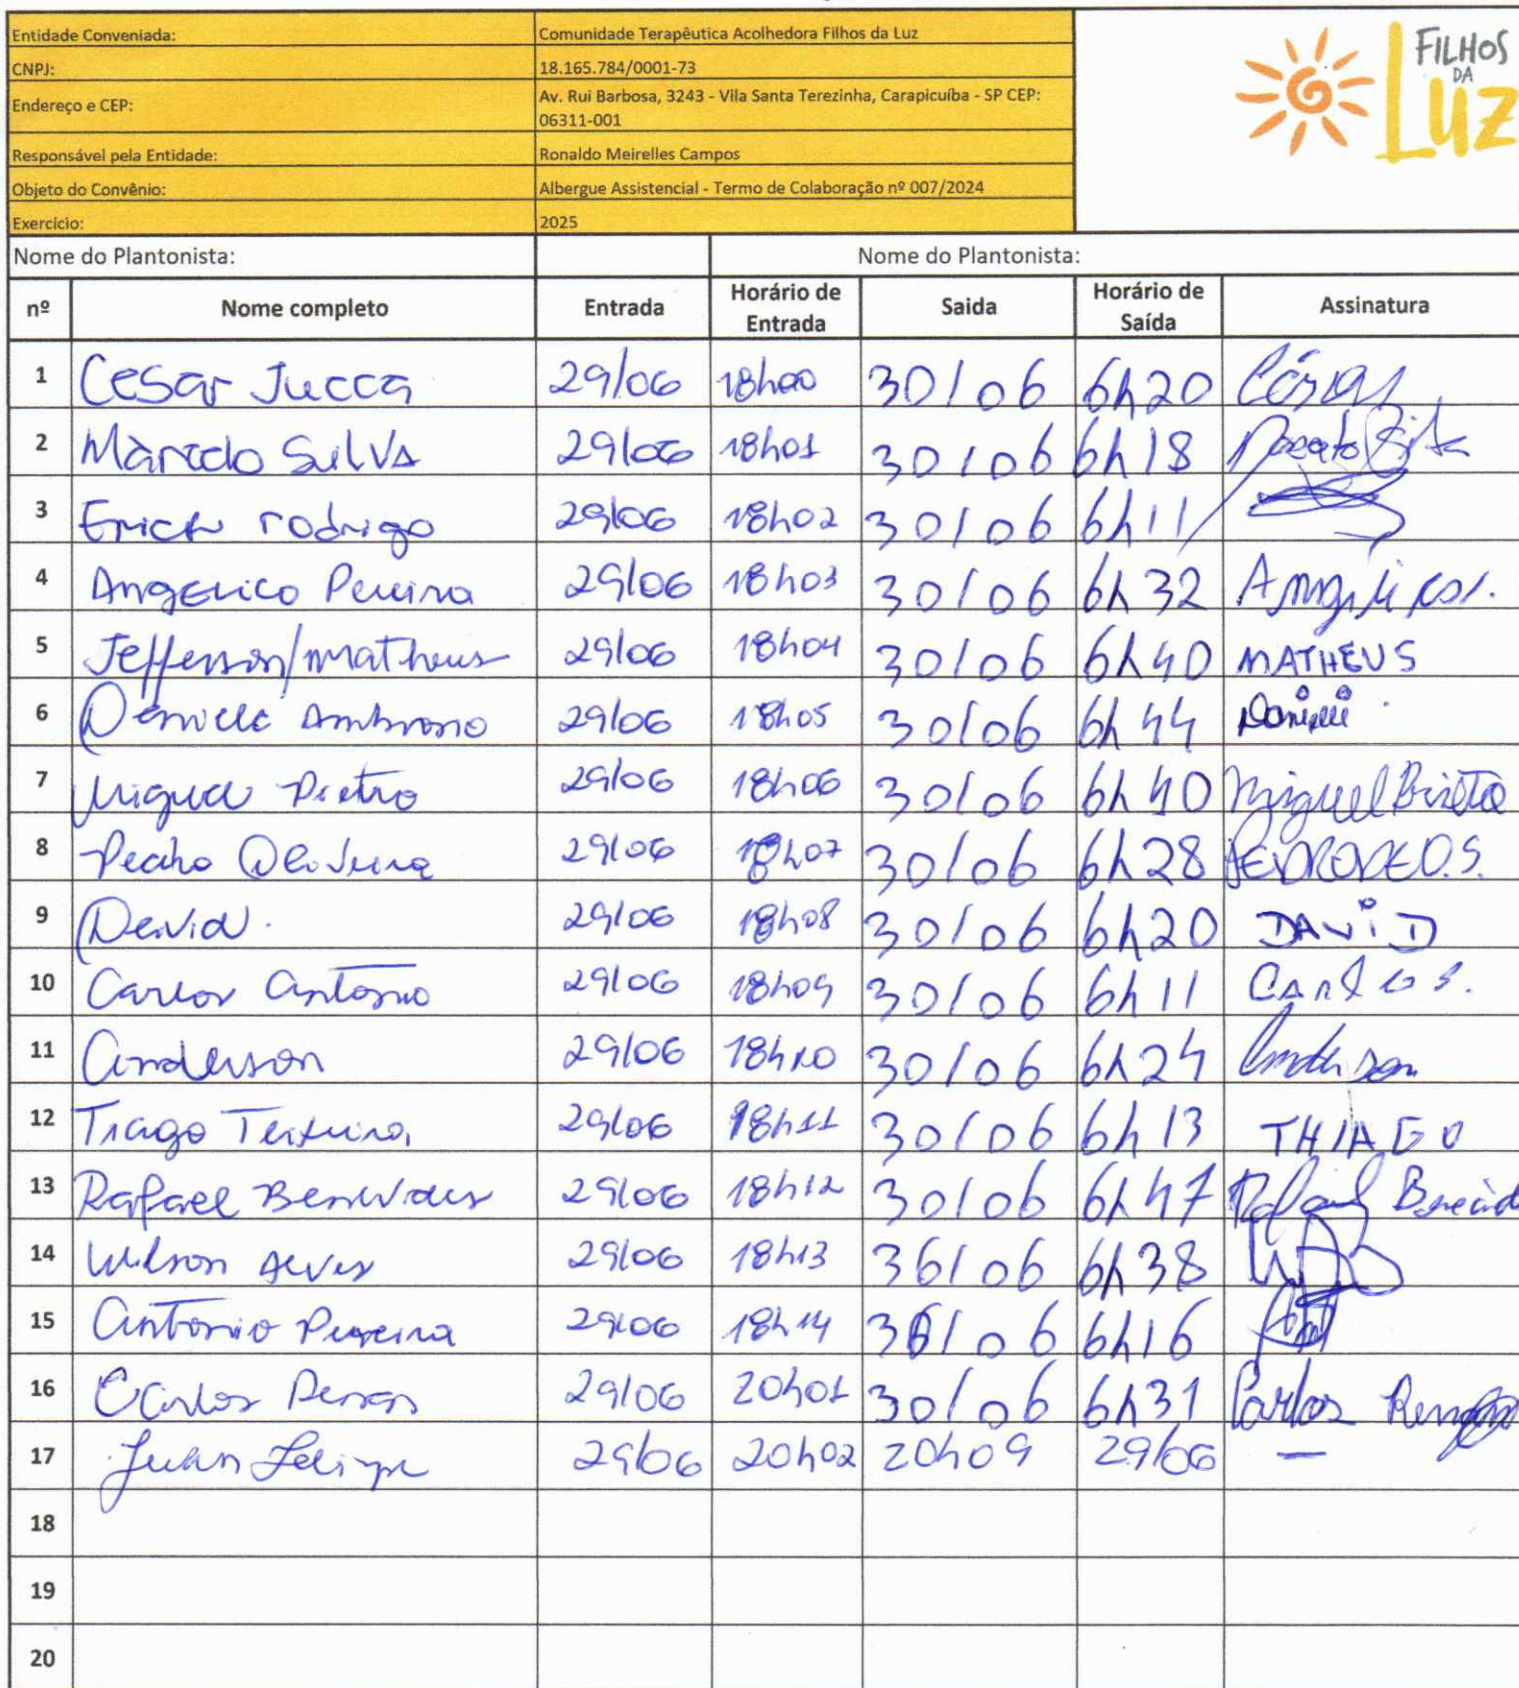 Entidade Conveniada: Comunidade Terapêutica Acolhedora Filhos da Luz
CNPJ: 18.165.784/0001-73
Endereço e CEP: Av. Rui Barbosa, 3243 - Vila Santa Terezinha, Carapicuíba - SP CEP: 06311-001
Responsável pela Entidade: Ronaldo Meirelles Campos
Objeto do Convênio: Albergue Assistencial - Termo de Colaboração nº 007/2024
Exercício: 2025
FILHOS
DA
LUZ
Nome do Plantonista: Nome do Plantonista:
nº Nome completo Entrada Horário de Entrada Saida Horário de Saída Assinatura
1 Cesar Jucca 29/06 18h00 30/06 6h20 César
2 Silva 29/06 18h01 30/06 6h18
3 Erick rodrigo 29/06 18h02 30/06 6h11
4 Angelico Pereira 29/06 18h03 30/06 6h32
5 Jefferson/Matheus 29/06 18h04 30/06 6h40 MATHEUS
6 29/06 18h05 30/06 6h44
7 Miguel Pietro 29/06 18h06 30/06 6h40 Miguel
8 Pedro Oliveira 29/06 18h07 30/06 6h28
9 David. 29/06 18h08 30/06 6h20 DAViD
10 Carlos Antonio 29/06 18h09 30/06 6h11 Carlos.
11 Anderson 29/06 18h10 30/06 6h24 Anderson
12 Tiago Teixeira 29/06 18h11 30/06 6h13 THIAGO
13 Rafael Benevides 29/06 18h12 30/06 6h47 Rafael
14 Wilson Alves 29/06 18h13 36/06 6h38
15 Antonio Pereira 29/06 18h14 30/06 6h16
16 Carlos 29/06 20h01 30/06 6h31 Carlos
17 Juan Felipe 29/06 20h02 20h09 29/06 —
18
19
20